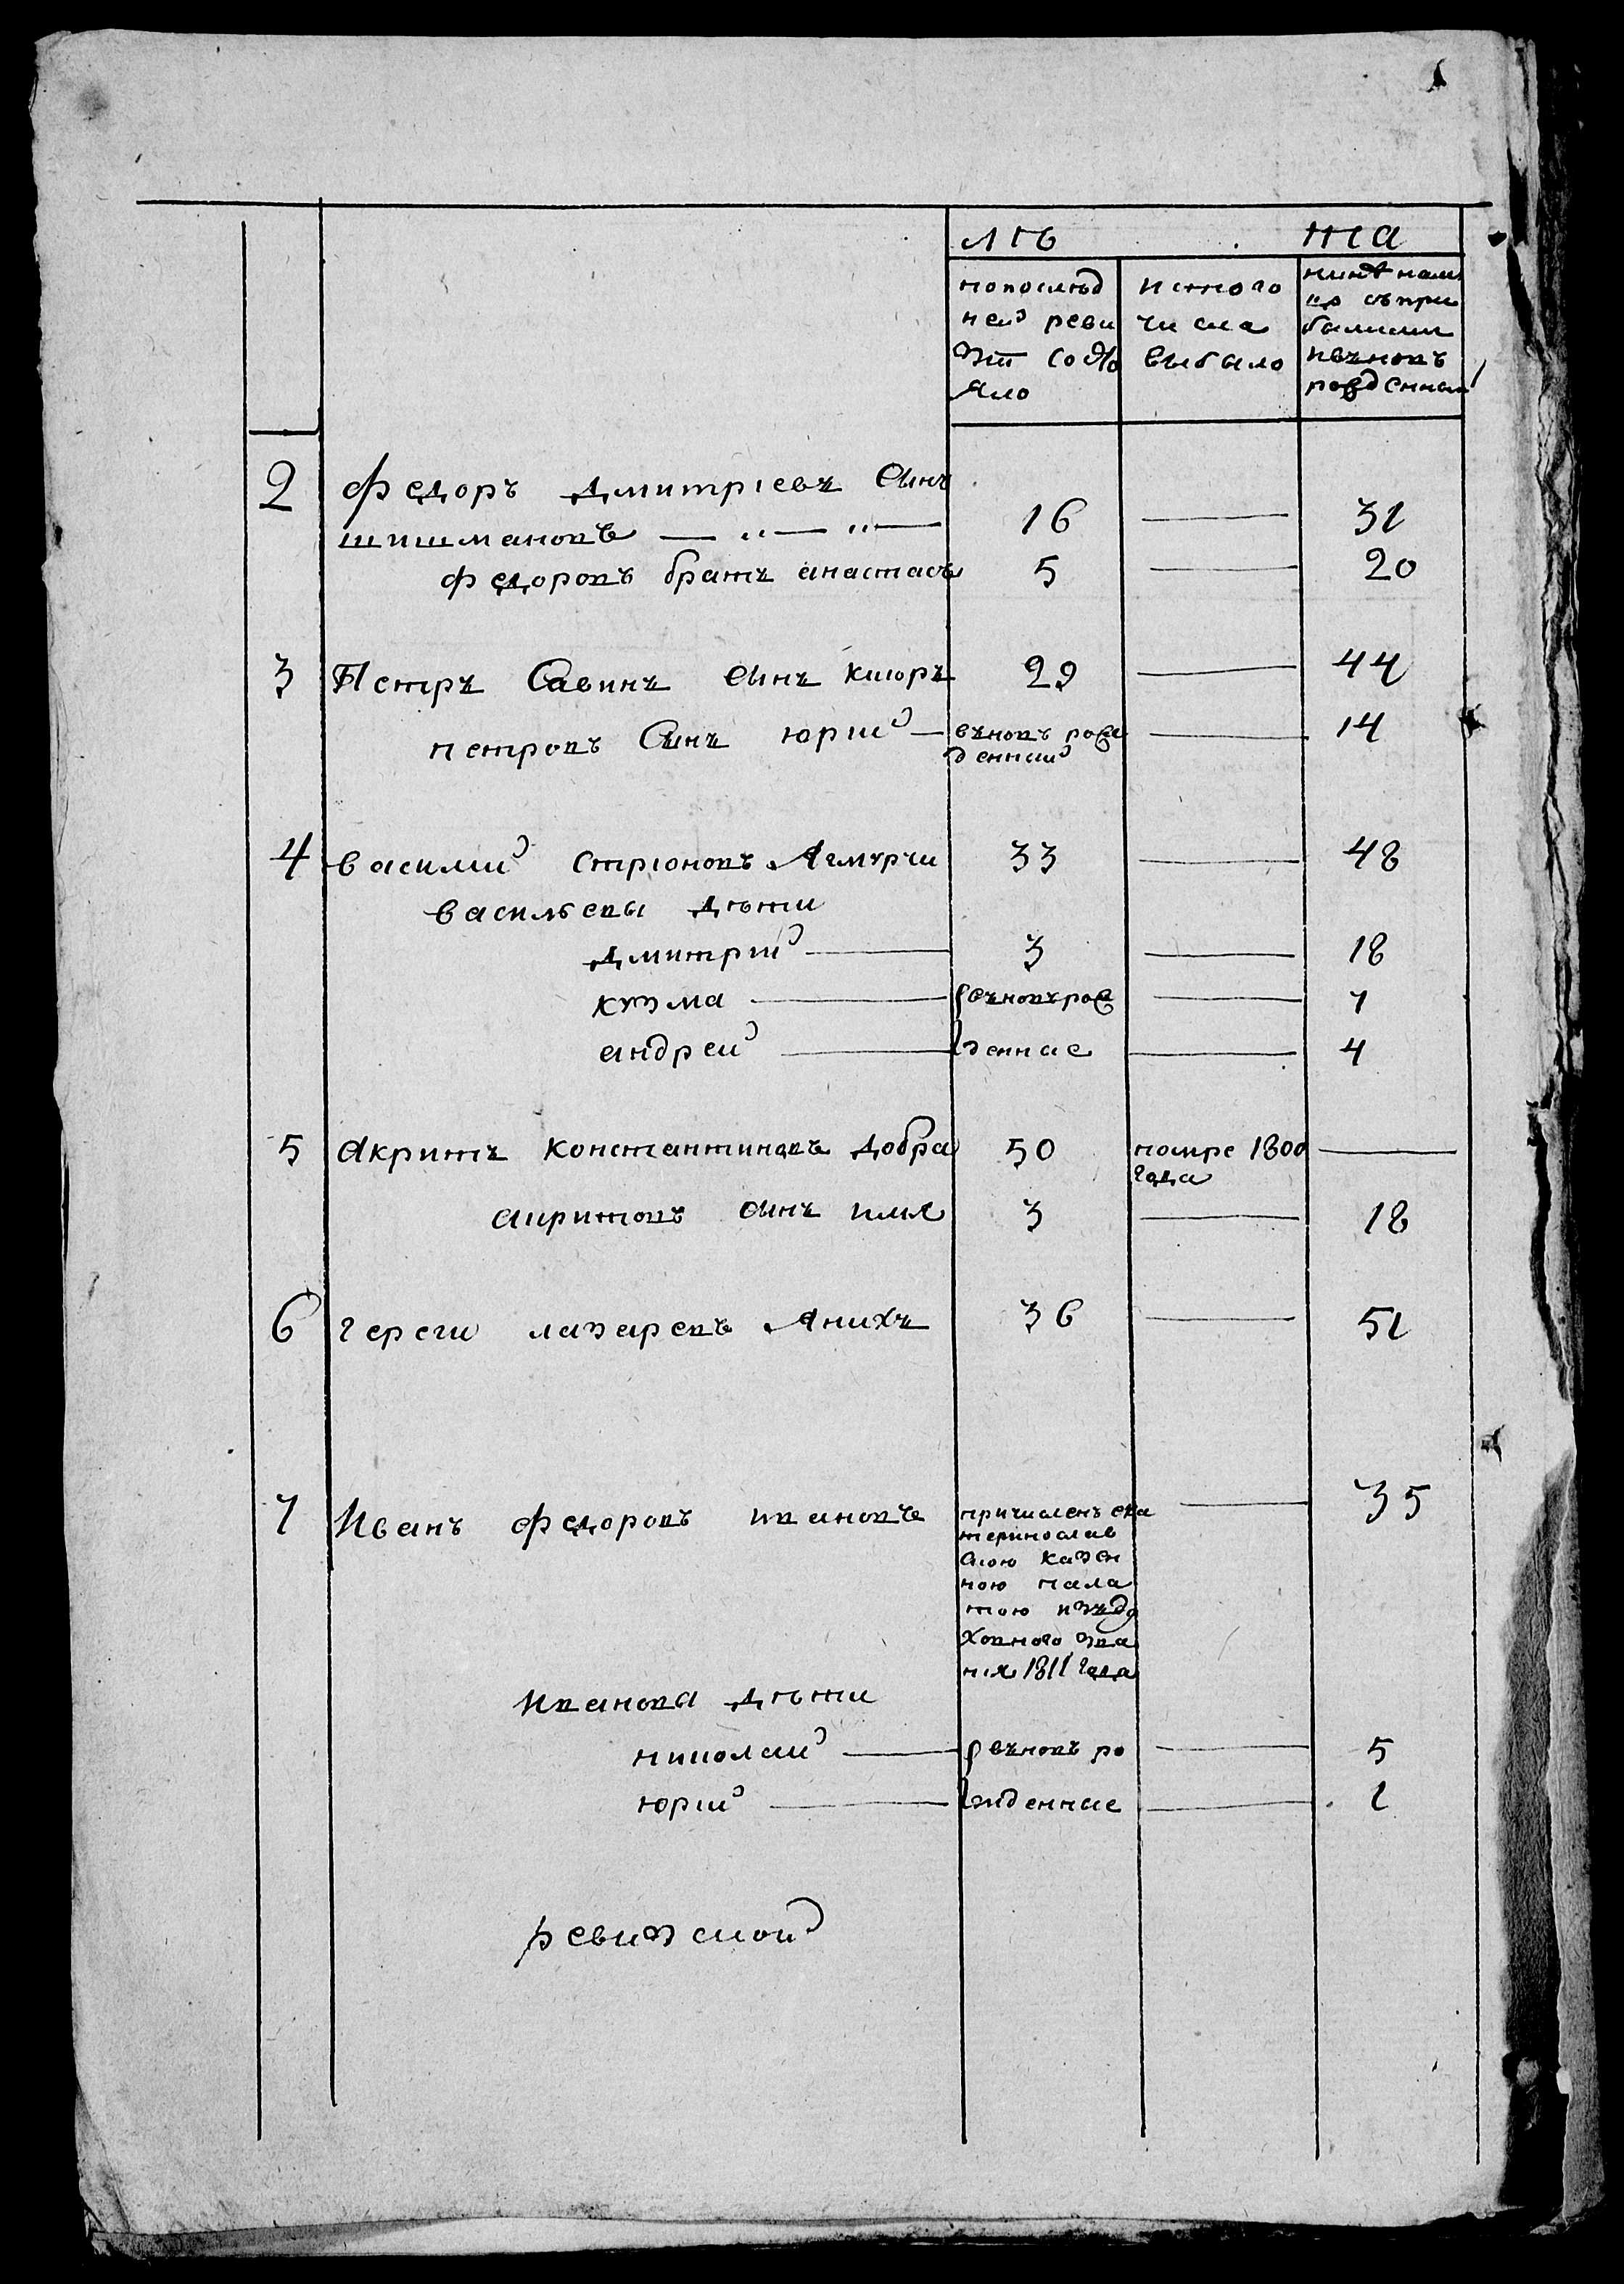 лѣ та
по послѣд
ней реви
зіи состо
яло
ис того
числа
выбыло
нинѣ нали
цо съпри
былими
ивновъ
рожденными
2 Федоръ Дмитріевъ сынъ
шишмановъ — „ — „ — 16 — 31
федоровъ братъ анастасъ 5 — 20
3 Петръ Савинъ сынъ кіюръ 29 — 44
петровъ Сынъ юрий — вновъ рож
денний — 14
4 василий стріоновъ Ягмурчи 33 — 48
васильевы дѣти
дмитрий — 3 — 18
кузма — вновърож — 7
андрей — денние — 4
5 Акритъ константиновъ добра 50 помре 1800
года —
акритовъ сынъ илия 3 — 18
6 гереги лазаревъ Янихъ 36 — 51
7 Иванъ федоровъ ивановъ причисленъ ека
теринослав
скою казен
ною пала
тою изъду
ховного зва
ния 1811 года — 35
Иванова дѣти
николай — вновъ ро — 5
юрий — жденние — 1
ревизской